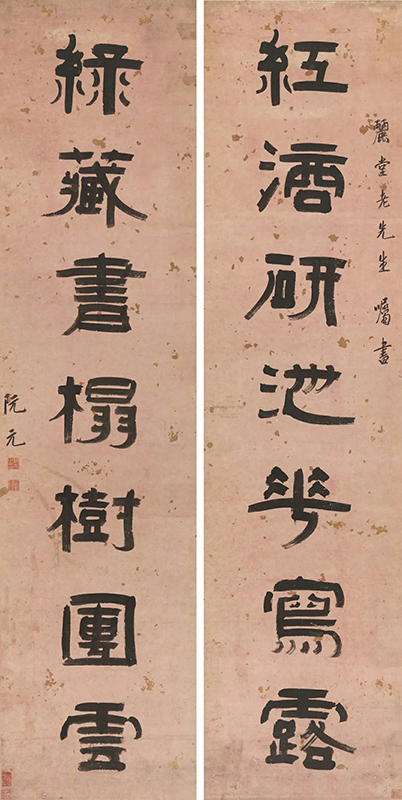 麗堂老先生囑書
紅滴研池華寫露
綠藏書榻樹團雲
阮元